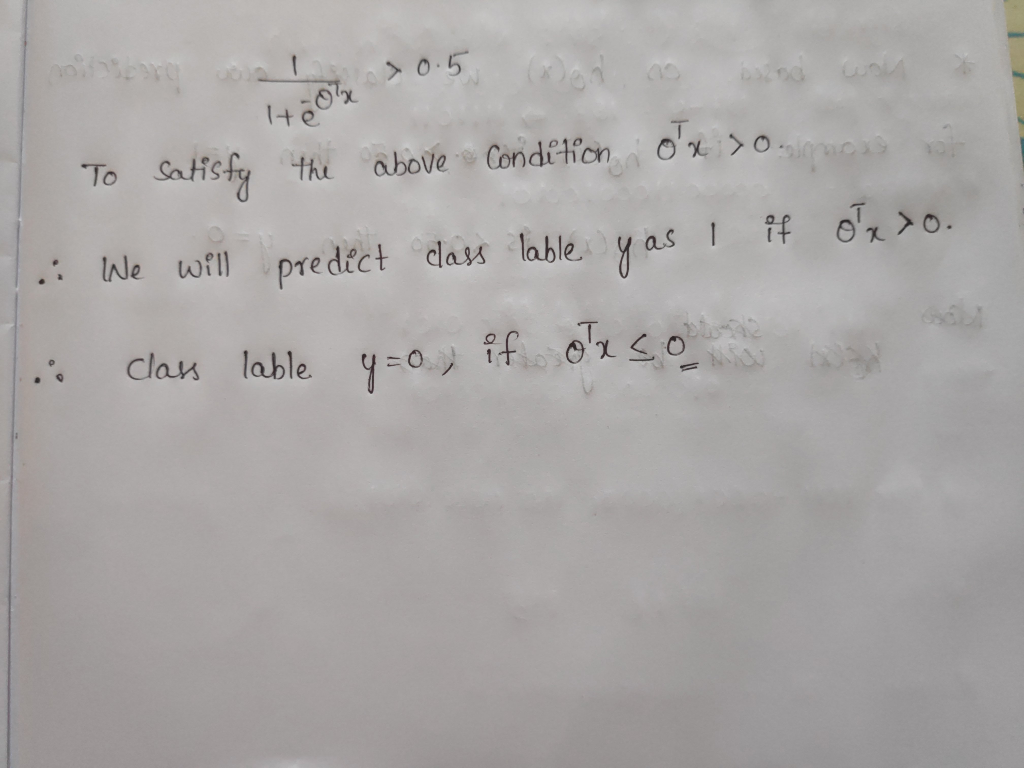 1 / 1+e^-θᵀx > 0.5
To satisfy the above condition θᵀx > 0.
∴ We will predict class lable y as 1 if θᵀx > 0.
∴ class lable y=0, if θᵀx ≤ 0